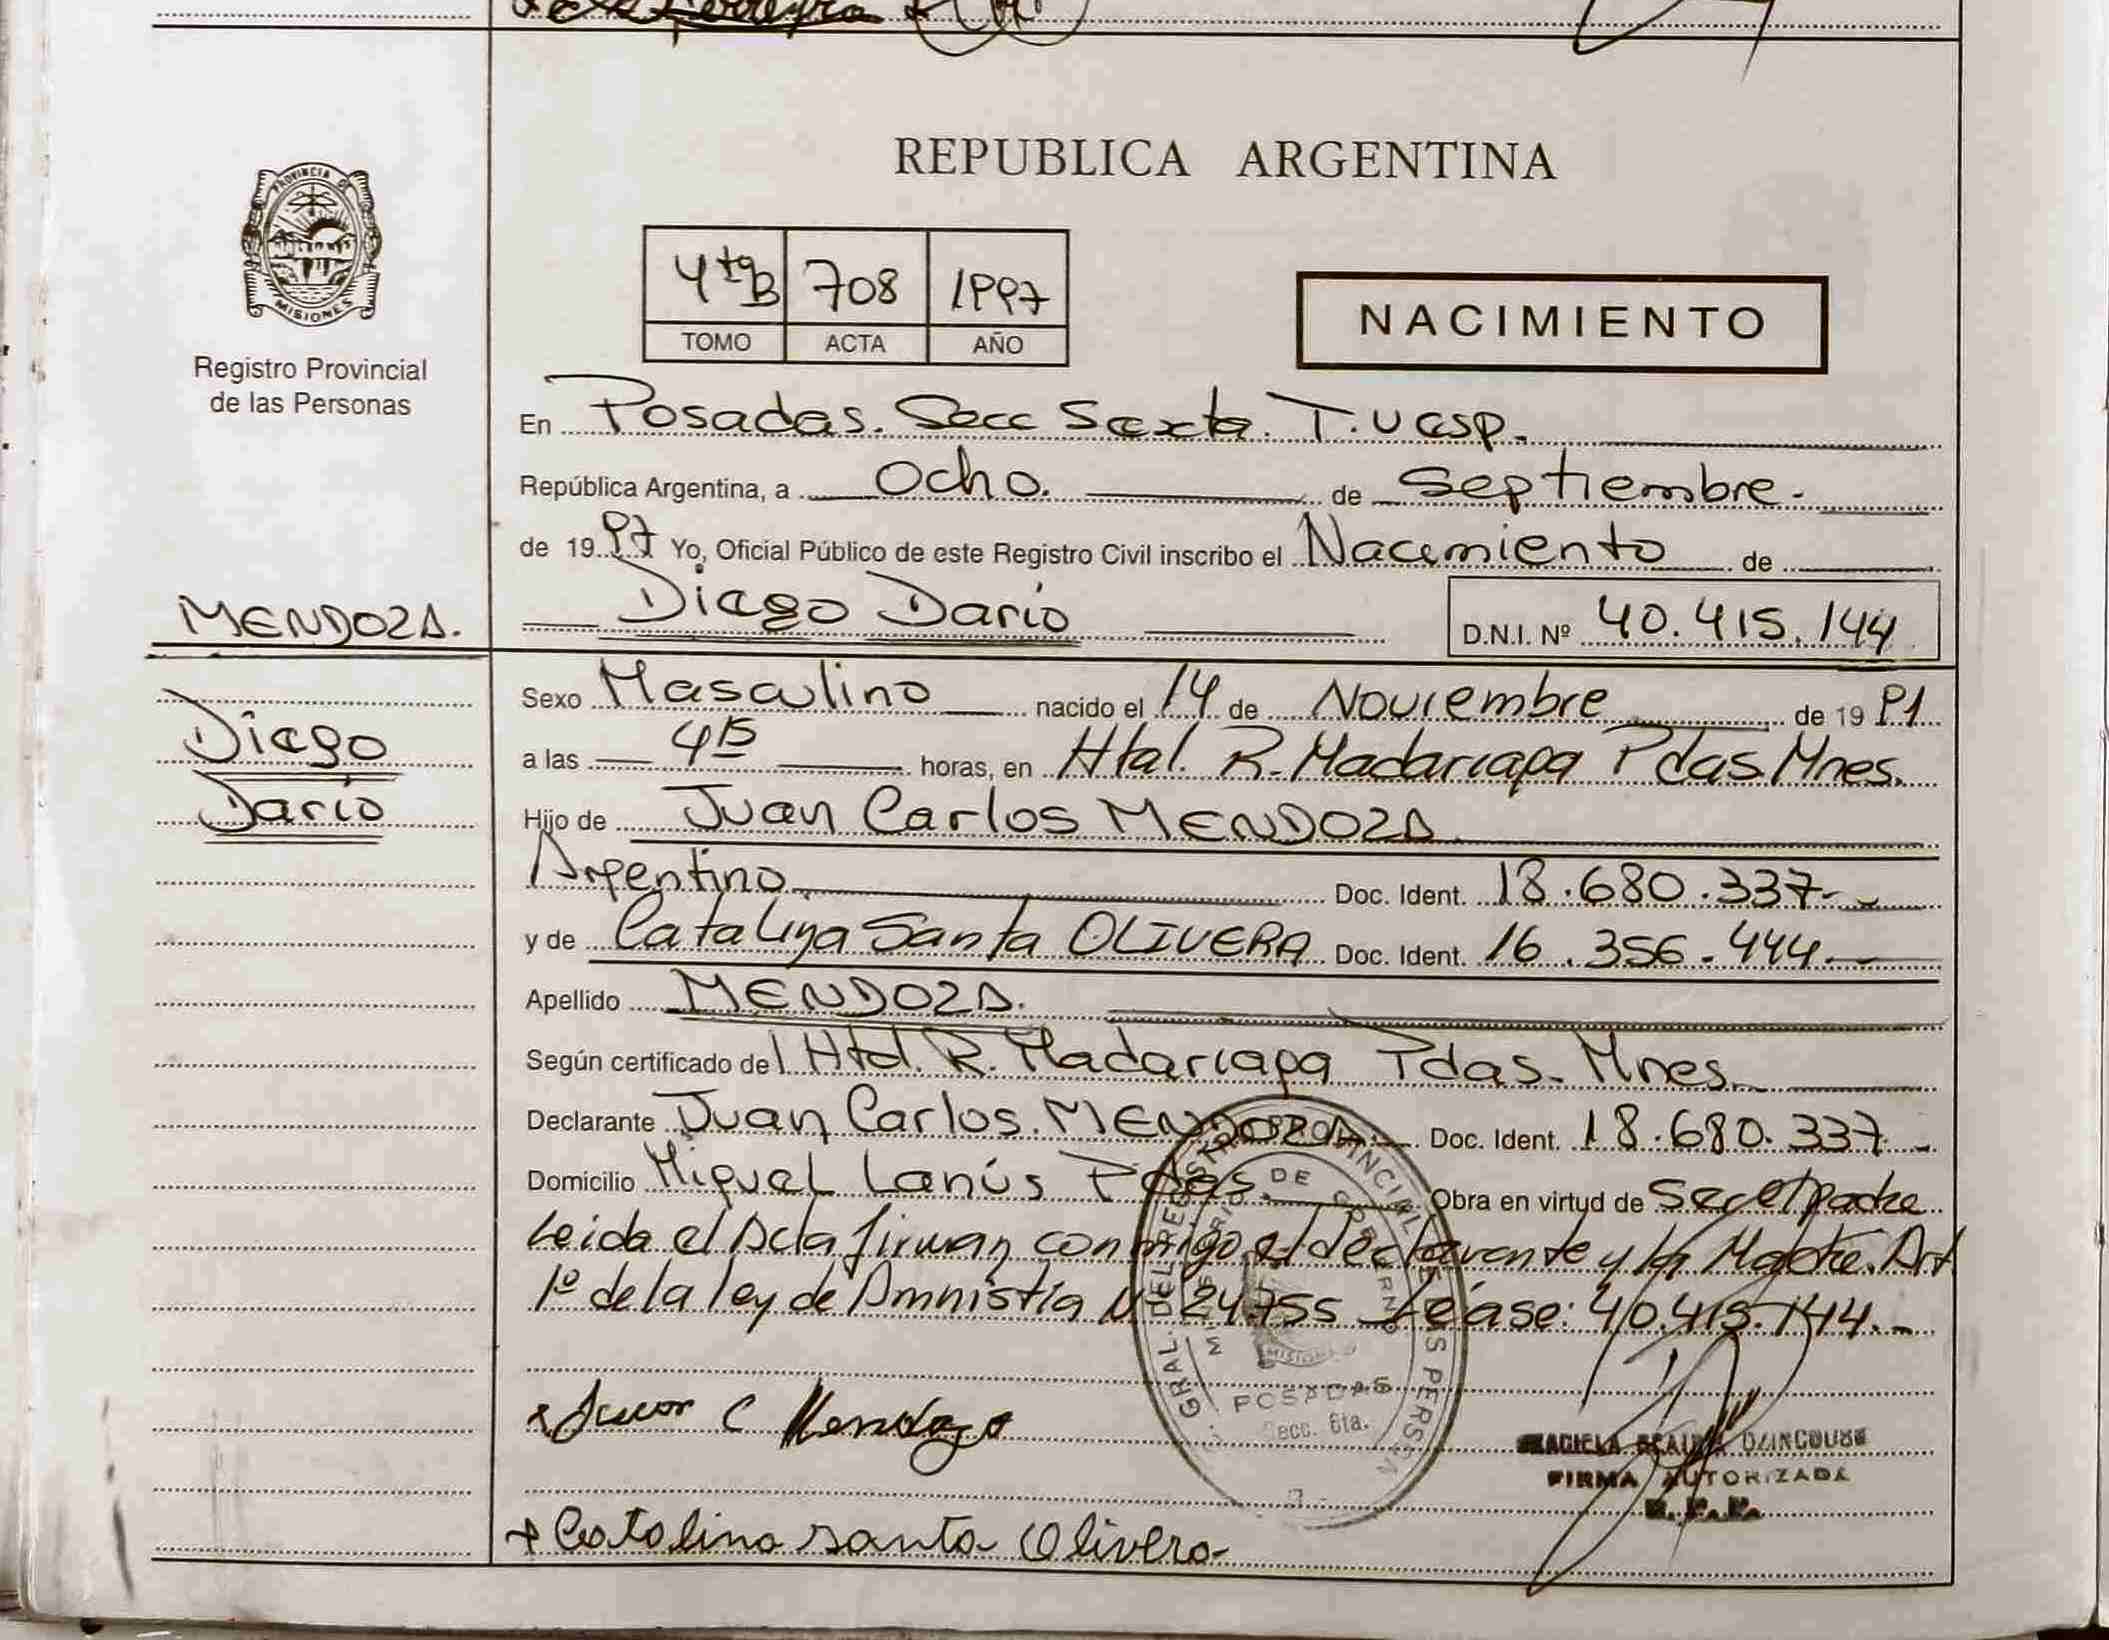 PROVINCIA DE
MISIONES
Registro Provincial
de las Personas
REPUBLICA ARGENTINA
4ta B 708 1997
TOMO ACTA AÑO
NACIMIENTO
En Posadas. Secc Sexta.
República Argentina, a ocho. de Septiembre.
de 1997 Yo, Oficial Público de este Registro Civil inscribo el Nacimiento de
MENDOZA. Diego Dario D.N.I. Nº 40.415.144
Sexo Masculino nacido el 14 de Noviembre de 1991
Diego a las 4 15 horas, en Htal. R. Madariaga Pdas Mnes.
Dario Hijo de Juan Carlos MENDOZA
Argentino Doc. Ident. 18.680.337.-
y de Catalina Santa OLIVERA Doc. Ident. 16.356.444.-
Apellido MENDOZA.
Según certificado del Htal. R. Madariaga Pdas. Mnes.
Declarante Juan Carlos. MENDOZA. Doc. Ident. 18.680.337.-
Domicilio Miguel Lanús Pdas. Obra en virtud de Ser el padre
Leida el Acta firman conmigo el declarante y la Madre. Art
1º de la ley de Amnistía Nº 24.755 Léase: 40.415.144.-
GRAL. DEL REGISTRO PROVINCIAL DE LAS PERSON
DE GOBIERNO
MISIONES
POSADAS
Secc. 6ta.
Juan C Mendoza
FIRMA AUTORIZADA
Catalina Santa Olivera